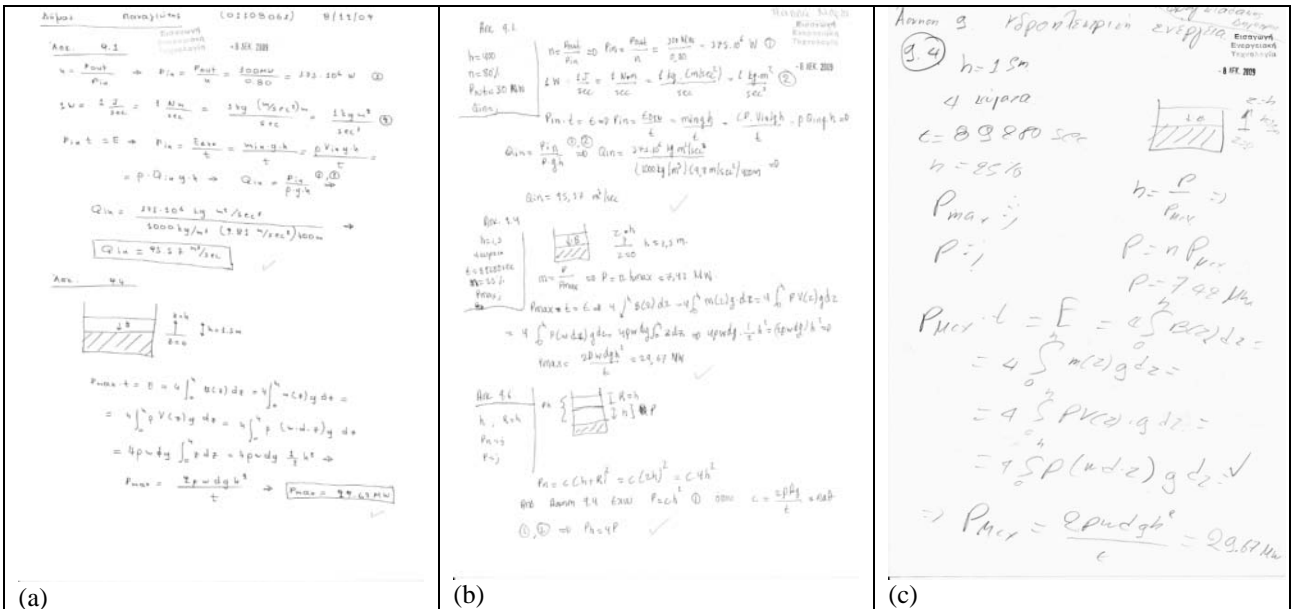 Δήμος Παναγιώτης (02108061) 8/12/09
Εισαγωγή
Ενεργειακή
Τεχνολογία
- 8 ΔΕΚ. 2009
Ασκ. 9.1
n = Pout / Pin → Pin = Pout / n = 300MW / 0.80 = 375·10⁶ W
1W = 1 J / sec = 1 Nm / sec = 1 kg (m/sec²) m / sec = 1 kg m² / sec³
Pin t = E → Pin = / t = min·g·h / t = ρ Vin g·h / t =
= ρ·Qin g·h → Qin = Pin / ρ·g·h ⇒
Qin = 375·10⁶ kg m²/sec³ / 1000 kg/m³ (9.81 m/sec²) 400m →
Qin = 95.57 m³/sec
Ασκ. 9.4
z=h
z=0
h=1.5m
Pmax·t = E = 4∫₀ʰ B(z) dz = 4∫₀ʰ m(z) g dz =
= 4∫₀ʰ ρ V(z) g dz = 4∫₀ʰ ρ (w·d·z) g dz
= 4ρwdg ∫₀ʰ z dz = 4ρwdg 1/2 h² →
Pmax = 2ρwdgh² / t → Pmax = 29.67 MW
(a)
Ασκ 9.1
h=400
n=80%
Qin=;
n = Pout / Pin ⇒ Pin = Pout / n = 300 MW / 0,80 = 375·10⁶ W ①
1W = 1J / sec = 1 Nm / sec = 1 kg·(m/sec²) / sec = 1 kg·m² / sec³ ②
Εισαγωγή
Ενεργειακή
Τεχνολογία
- 8 ΔΕΚ. 2009
Pin·t = E ⇒ Pin = / t = min g h / t = (ρ·Vin) g h / t = ρ Qin g·h ⇒
Qin = Pin / ρ·gh ①,② ⇒ Qin = 375·10⁶ kg m²/sec³ / (1000 kg/m³)(9,8 m/sec²) 400m ⇒
Qin = 95,57 m³/sec
Ασκ. 9.4
z=h
z=0
h=1,5 m.
Pmax;
n = P / Pmax ⇒ P = n Pmax = 7,42 MW.
Pmax·t = E ⇒ 4∫₀ʰ B(z) dz = 4∫₀ʰ m(z) g·dz = 4∫₀ʰ ρ V(z) g dz
= 4∫₀ʰ ρ(w d z) g dz = 4ρwdg∫₀ʰ z dz ⇒ 4ρwdg·1/2 h² = (2ρwdg) h² ⇒
Pmax = 2ρwdgh² / t = 29,67 MW
Ασκ 9.6
h, R=h
Pn=;
P=;
R=h
h
Pn = c(h+R)² = c(2h)² = c4h²
Από Άσκηση 9.4 έχω P=ch² ①
①,② ⇒ Pn=4P
(b)
Άσκηση 9 Υδροηλεκτρική ενέργεια
Εισαγωγή
Ενεργειακή
Τεχνολογία
- 8 ΔΕΚ. 2009
9.4
h=1.5m
t=89280 sec
n=25%
z=h
z=0
Pmax=;
P=;
n = P / Pmax ⇒
P = n Pmax
P=7.42 Mw
Pmax·t = E = 4∫₀ʰ B(z) dz =
= 4∫₀ʰ m(z) g dz =
= 4∫₀ʰ ρV(z)·g dz =
= 4∫₀ʰ ρ(wd·z) g dz =
⇒ Pmax = 2ρwdgh² / t = 29.67 Mw
(c)